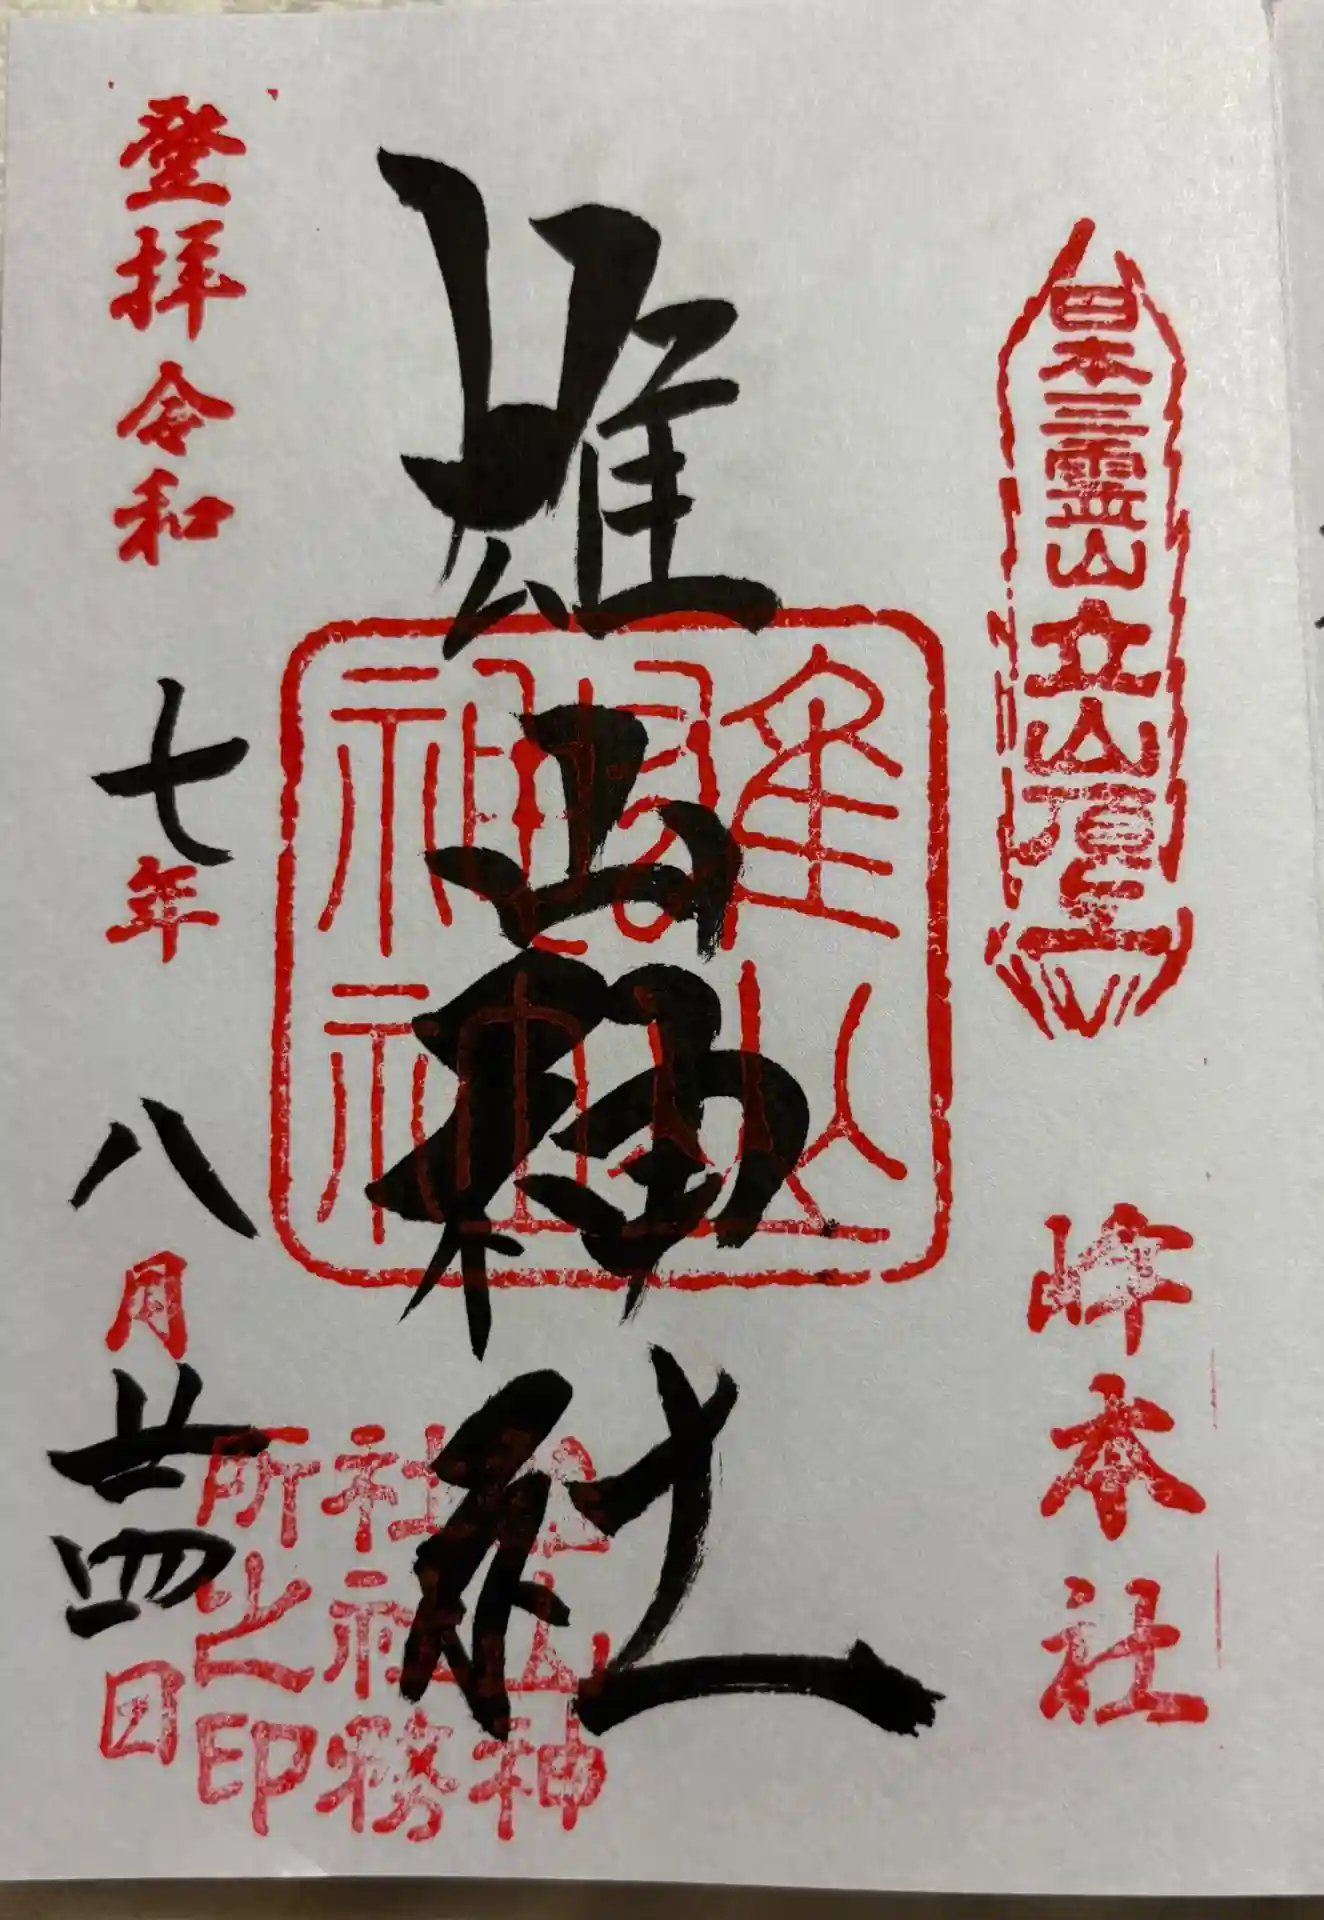 日本三霊山立山頂上
峰本社
雄山神社
雄山神社
雄山神
社社務
所之印
登拝令和七年八月廿四日